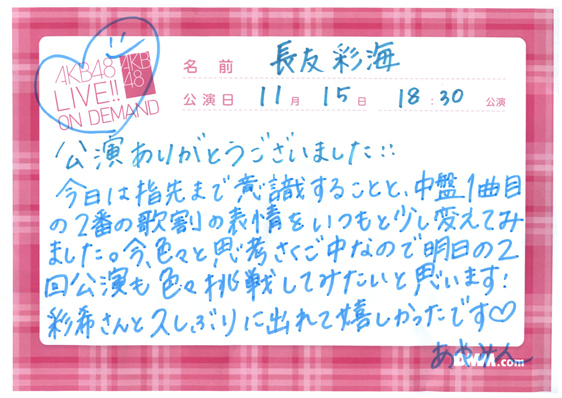 AKB48
LIVE!!
ON DEMAND
AKB
48
名前 長友彩海
公演日 11月 15日 18:30 公演
公演ありがとうございました!!
今日は指先まで意識することと、中盤1曲目
の2番の歌割の表情をいつもと少し変えてみ
ました。今、色々と思考さくご中なので明日の2
回公演も色々挑戦してみたいと思います!
彩希さんと久しぶりに出れて嬉しかったです♡
あやみん
.com